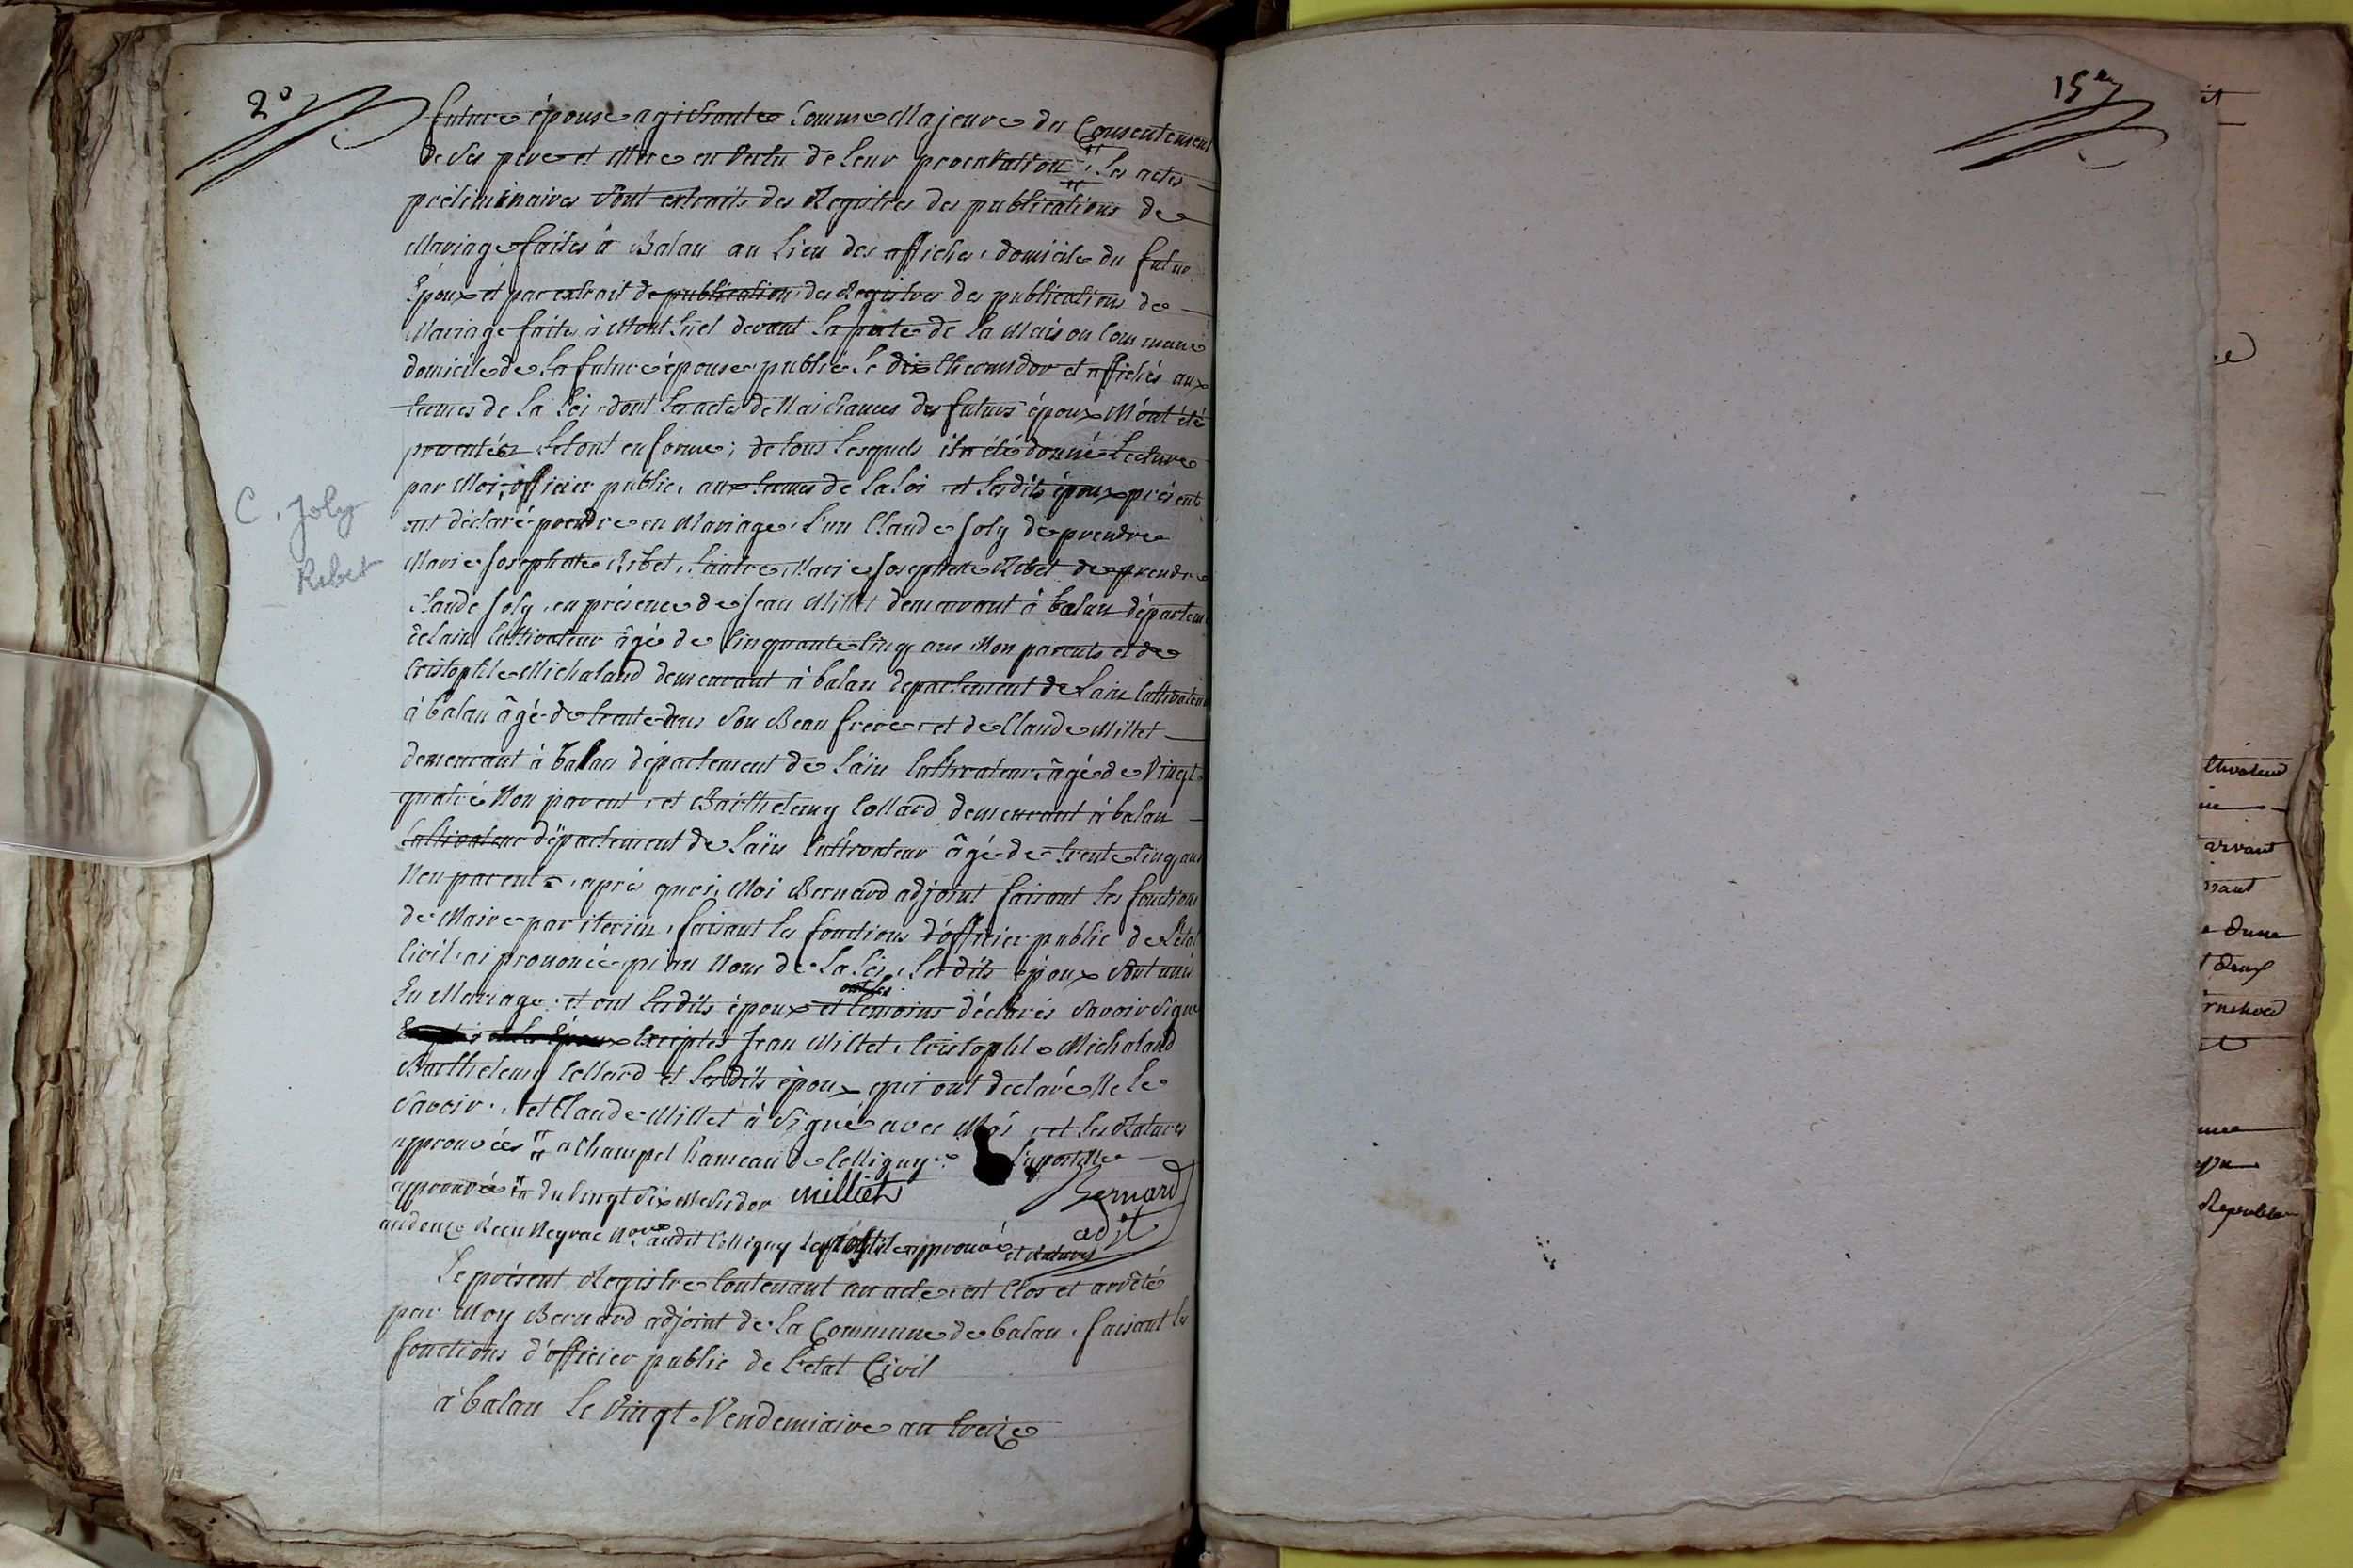 2º
future épouse agissante Comme Majeure du Consentement
de ses pere et Mere en Vertu de leur procuration " Les actes
préliminaires sont extraits des Registres des publications de
Mariage faites à Balan au Lieu des affiches, domicile du futur
Epoux et par extrait de publication des Registres des publications de
Mariage faites à Montluel devant La porte de La Maison Commune
domicile de La future épouse publié Le dix thermidor et affichés aux
termes de La Loi, dont Les actes de Naissances des futurs époux M'ont été
presentés Le tout en forme; de tous Lesquels il a été donné Lecture
par Moi, officier public, aux termes de La Loi et Lesdits époux présents
ont déclaré prendre en Mariage, L'un Claude Joly de prendre
Marie Josephate Ribet, L'autre, Marie Josephate Ribet de prendre
Claude Joly, en présence de Jean Millet demeurant à balan départem
delain Cultivateur âgé de Cinquante Cinq ans Non parents et de
Cristophle Michaland demeurant à balan departement de Lain Cultivateur
à balan âgé de trente ans son Beau frere, et de Claude Millet
demeurant à balan département de Lain Cultivateur, âgé de Vingt
quatre Non parent, et Barthelemy Collard demeurant à balan
Cultivateur département de Lain Cultivateur âgé de trente Cinq ans
Non parent, après quoi, Moi Bernard adjoint faisant Les fonctions
de Maire par iterim, faisant Les fonctions d'officier public de L'etat
Civil, ai prononcé qu'au Nom de La Loi, Lesdits époux sont unis
En Mariage, et ont Lesdits époux et temoins déclarés Savoir Signer
Exceptés Jean Millet, Cristophle Michaland
Barthelemy Collard et Lesdits époux qui ont declaré Ne Le
Savoir, et Claude Millet à Signé avec Moi, et Les Ratures
approuvées " a Champel hameau de Colligny
approuvé " du Vingt Six Messidor milliet Bernard
an douze Recu Neyrac Nore audit Colligny approuvé et ratures
adjt
Le présent Registre Contenant un acte, est Clos et arrêté
par Moy Bernard adjoint de La Commune de balan, faisant Les
fonctions d'officier public de L'etat Civil
à balan Le Vingt Vendemiaire an treize
C. Joly
Ribet
15e